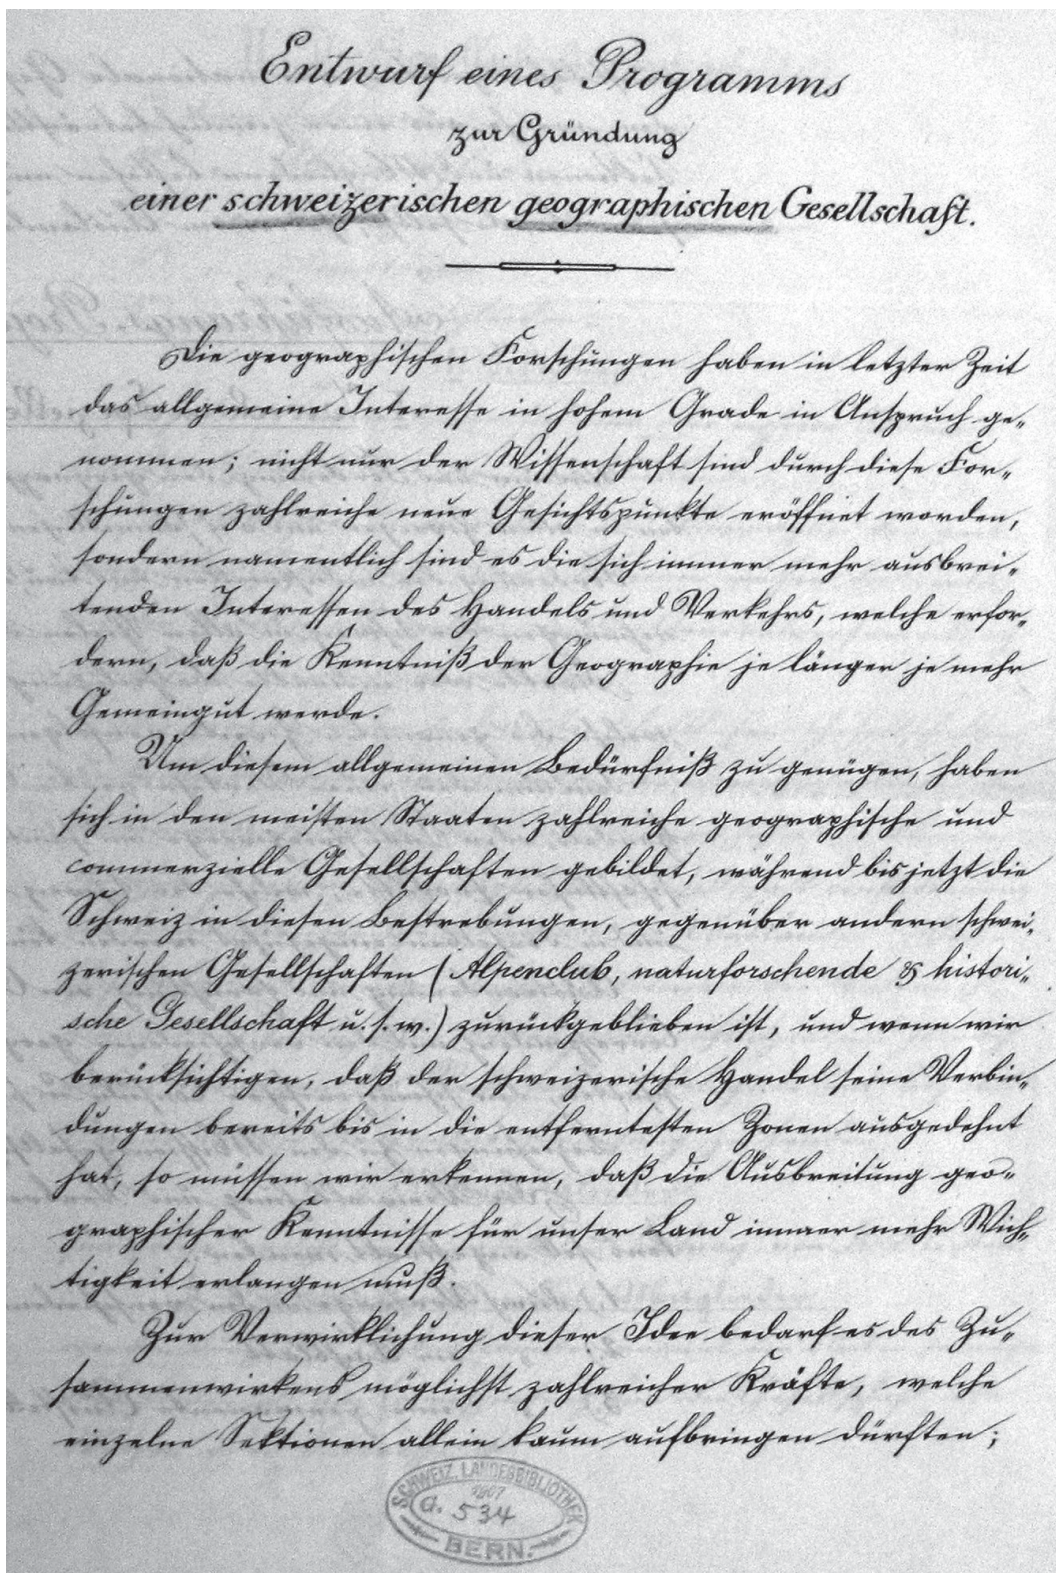 Entwurf eines Programms
zur Gründung
einer schweizerischen geographischen Gesellschaft.
Die geographischen Forschungen haben in letzter Zeit
das allgemeine Interesse in hohem Grade in Anspruch ge-
nommen; nicht nur der Wissenschaft sind durch diese For-
schungen zahlreiche neue Gesichtspunkte eröffnet worden,
sondern namentlich sind es die sich immer mehr ausbrei-
tenden Interessen des Handels und Verkehrs, welche erfor-
dern, daß die Kenntniß der Geographie je länger je mehr
Gemeingut werde.
Um diesem allgemeinen Bedürfniß zu genügen, haben
sich in den meisten Staaten zahlreiche geographische und
commerzielle Gesellschaften gebildet, während bis jetzt die
Schweiz in diesen Bestrebungen, gegenüber andern schwei-
zerischen Gesellschaften (Alpenclub, naturforschende & histori-
sche Gesellschaft u. s. w.) zurückgeblieben ist, und wenn wir
berücksichtigen, daß der schweizerische Handel seine Verbin-
dungen bereits bis in die entferntesten Zonen ausgedehnt
hat, so müssen wir erkennen, daß die Ausbreitung geo-
graphischer Kenntnisse für unser Land immer mehr Wich-
tigkeit erlangen muß.
Zur Verwirklichung dieser Idee bedarf es des Zu-
sammenwirkens möglichst zahlreicher Kräfte, welche
einzelne Sektionen allein kaum aufbringen dürften;
SCHWEIZ. LANDESBIBLIOTHEK
1907
a. 534
BERN.